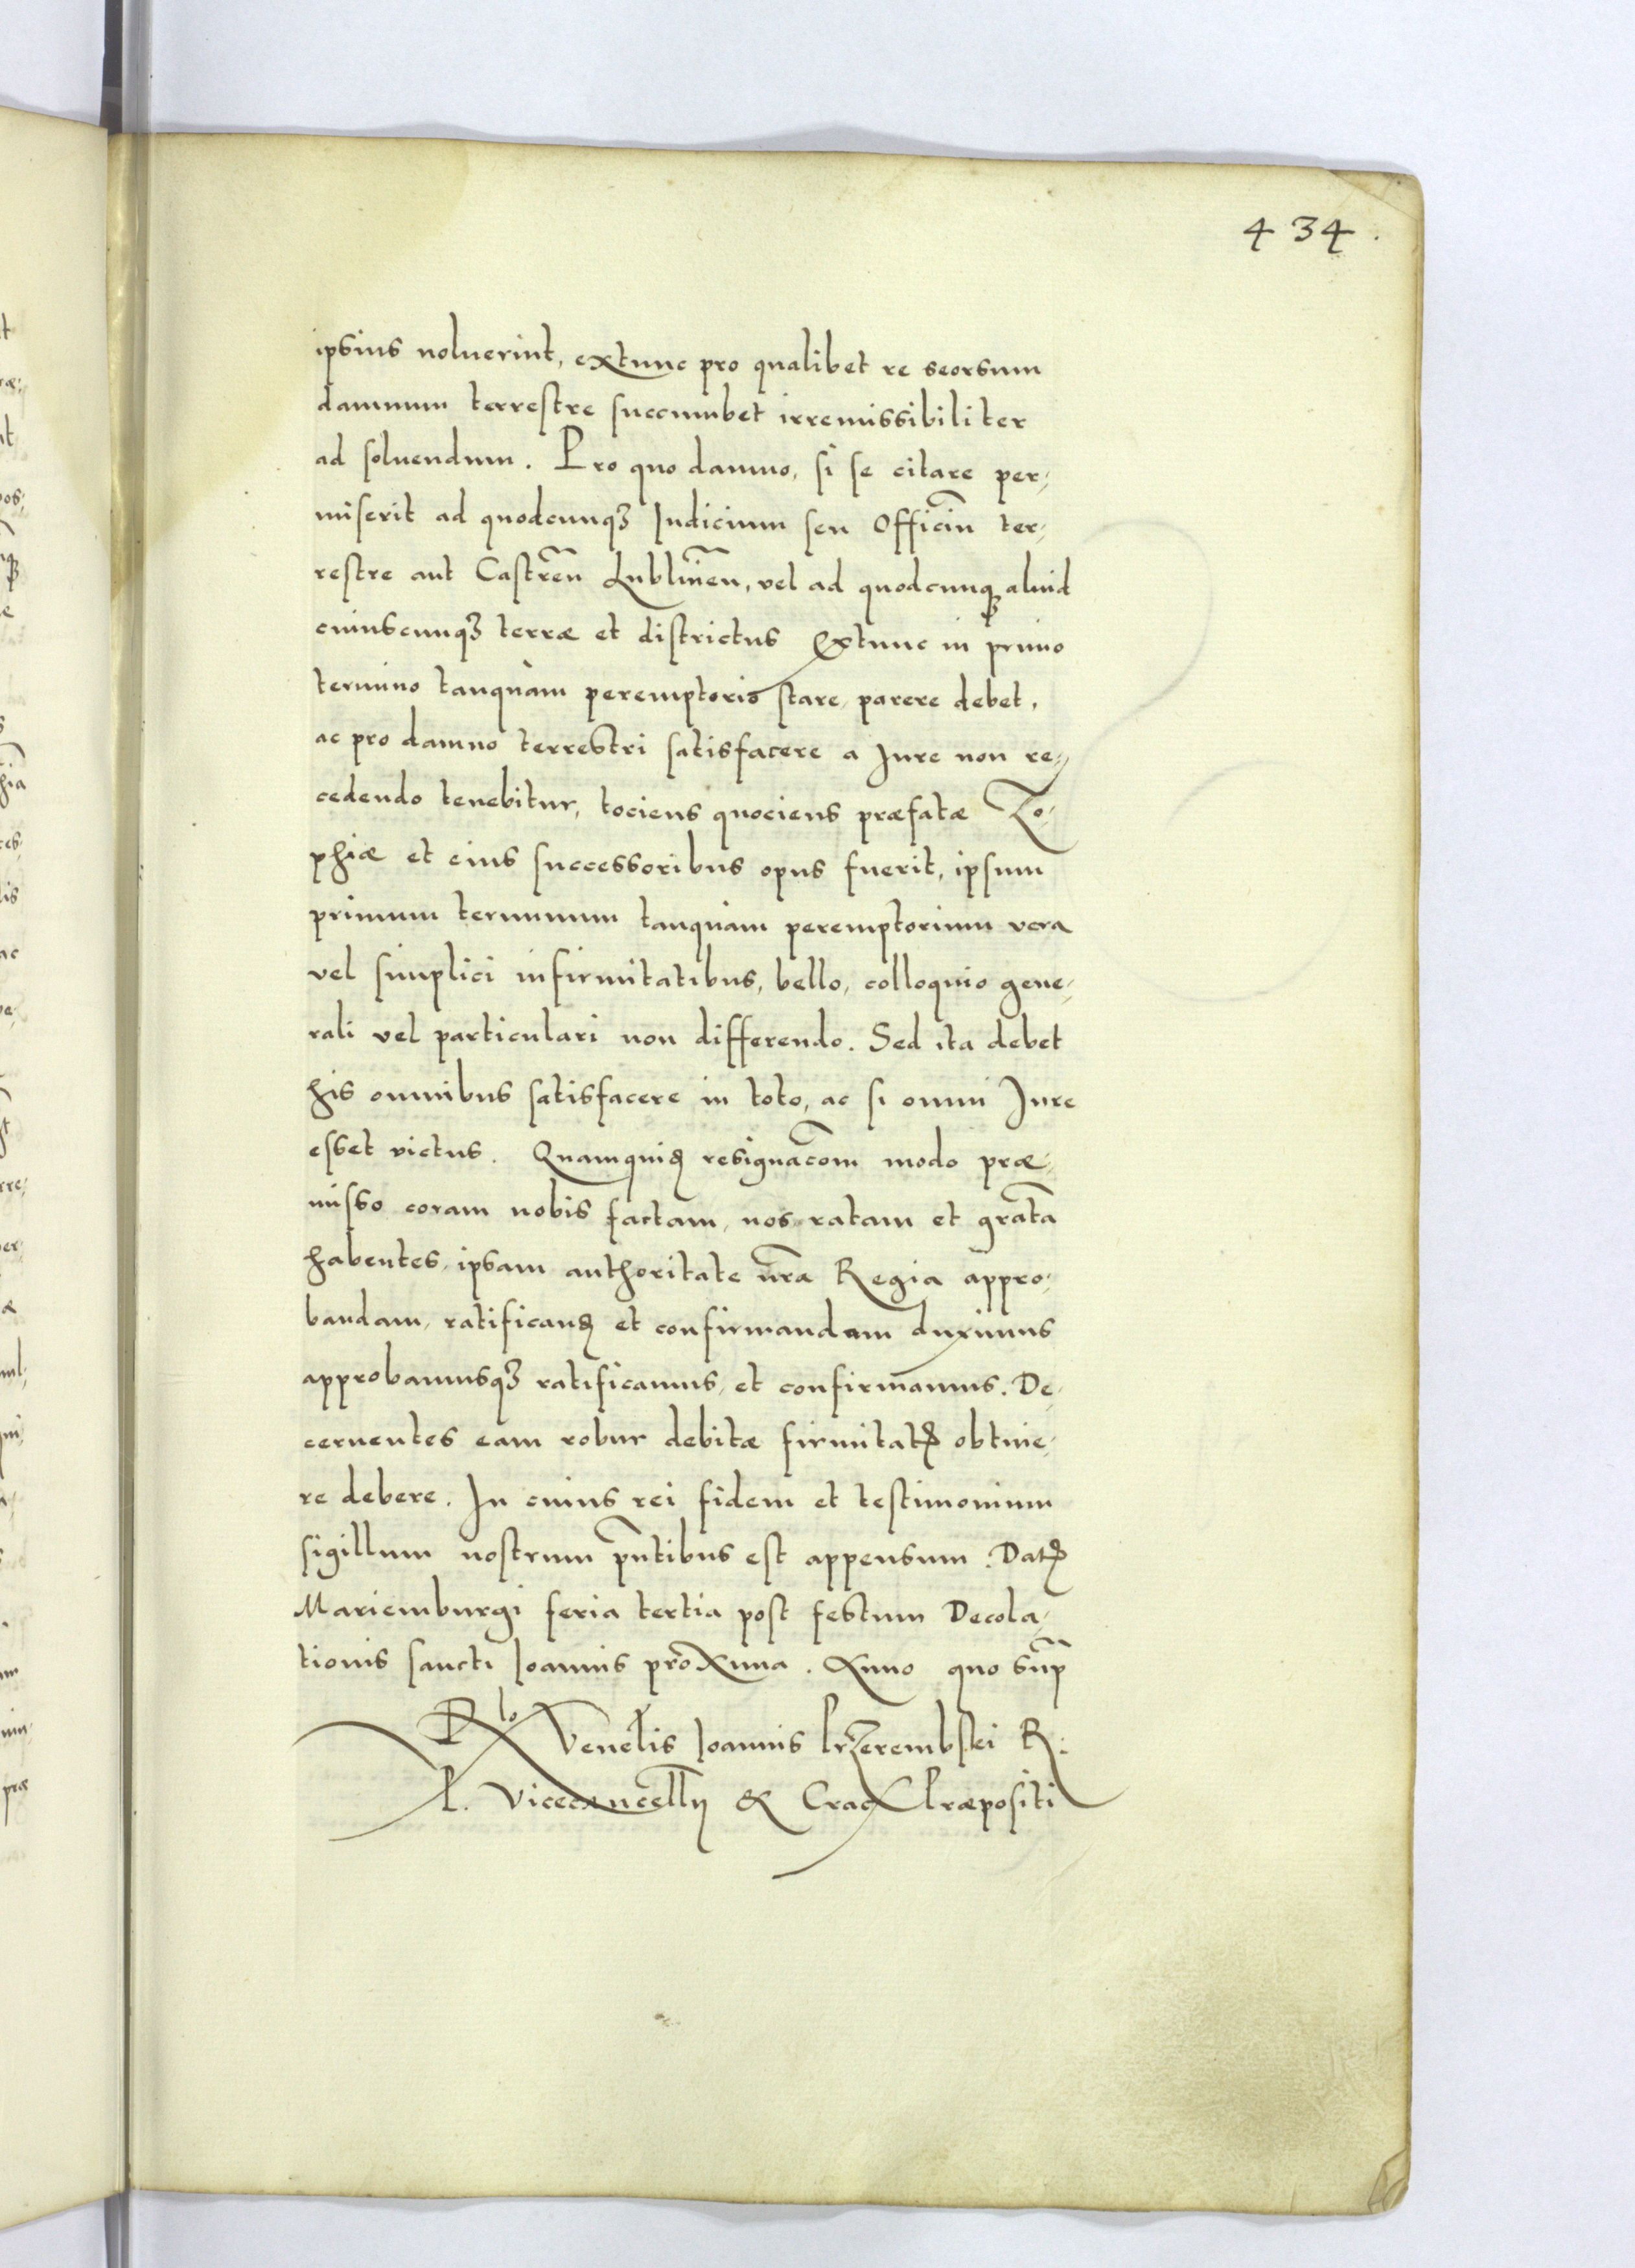 434.
ipsius noluerint, extunc pro qualibet re seorsum
damnum terrestre succumbet irremissibiliter
ad soluendum. Pro quo damno, si se citare per,
miserit ad quodcunqꝫ Judicium seu Officiū ter,
restre aut Castreñ Lublineñ, vel ad quodcunqꝫ aliud
cuiuscunqꝫ terræ et districtus Extunc in primo
termino tanquam peremptorio stare, parere debet,
ac pro damno terrestri satisfacere a Jure non re,
cedendo tenebitur, tociens quociens præfatæ Zo,
phiæ et eius successoribus opus fuerit, ipsum
primum terminum tanquam peremptorium vera
vel simplici infirmitatibus, bello, colloquio gene,
rali vel particulari non differendo. Sed ita debet
his omnibus satisfacere in toto, ac si omni Jure
esset victus. Quamquid resignacōm modo præ,
misso coram nobis factam, nos ratam et gratā
habentes, ipsam authoritate nr̄a Regia appro,
bandam, ratificand et confirmandam duximus
approbamusqꝫ ratificamus, et confirmamus. De,
cernentes eam robur debitæ firmitatꝭ obtine,
re debere. In cuius rei fidem et testimonium
sigillum nostrum pn̄tibus est appensum. Datꝭ
Mariemburgi feria tertia post festum Decola,
tionis sancti Joannis proxima. Anno quo sup̄
Rlo Venelis Joannis Przerembskei R.
P. Vicecancellij & Crac Præpositi